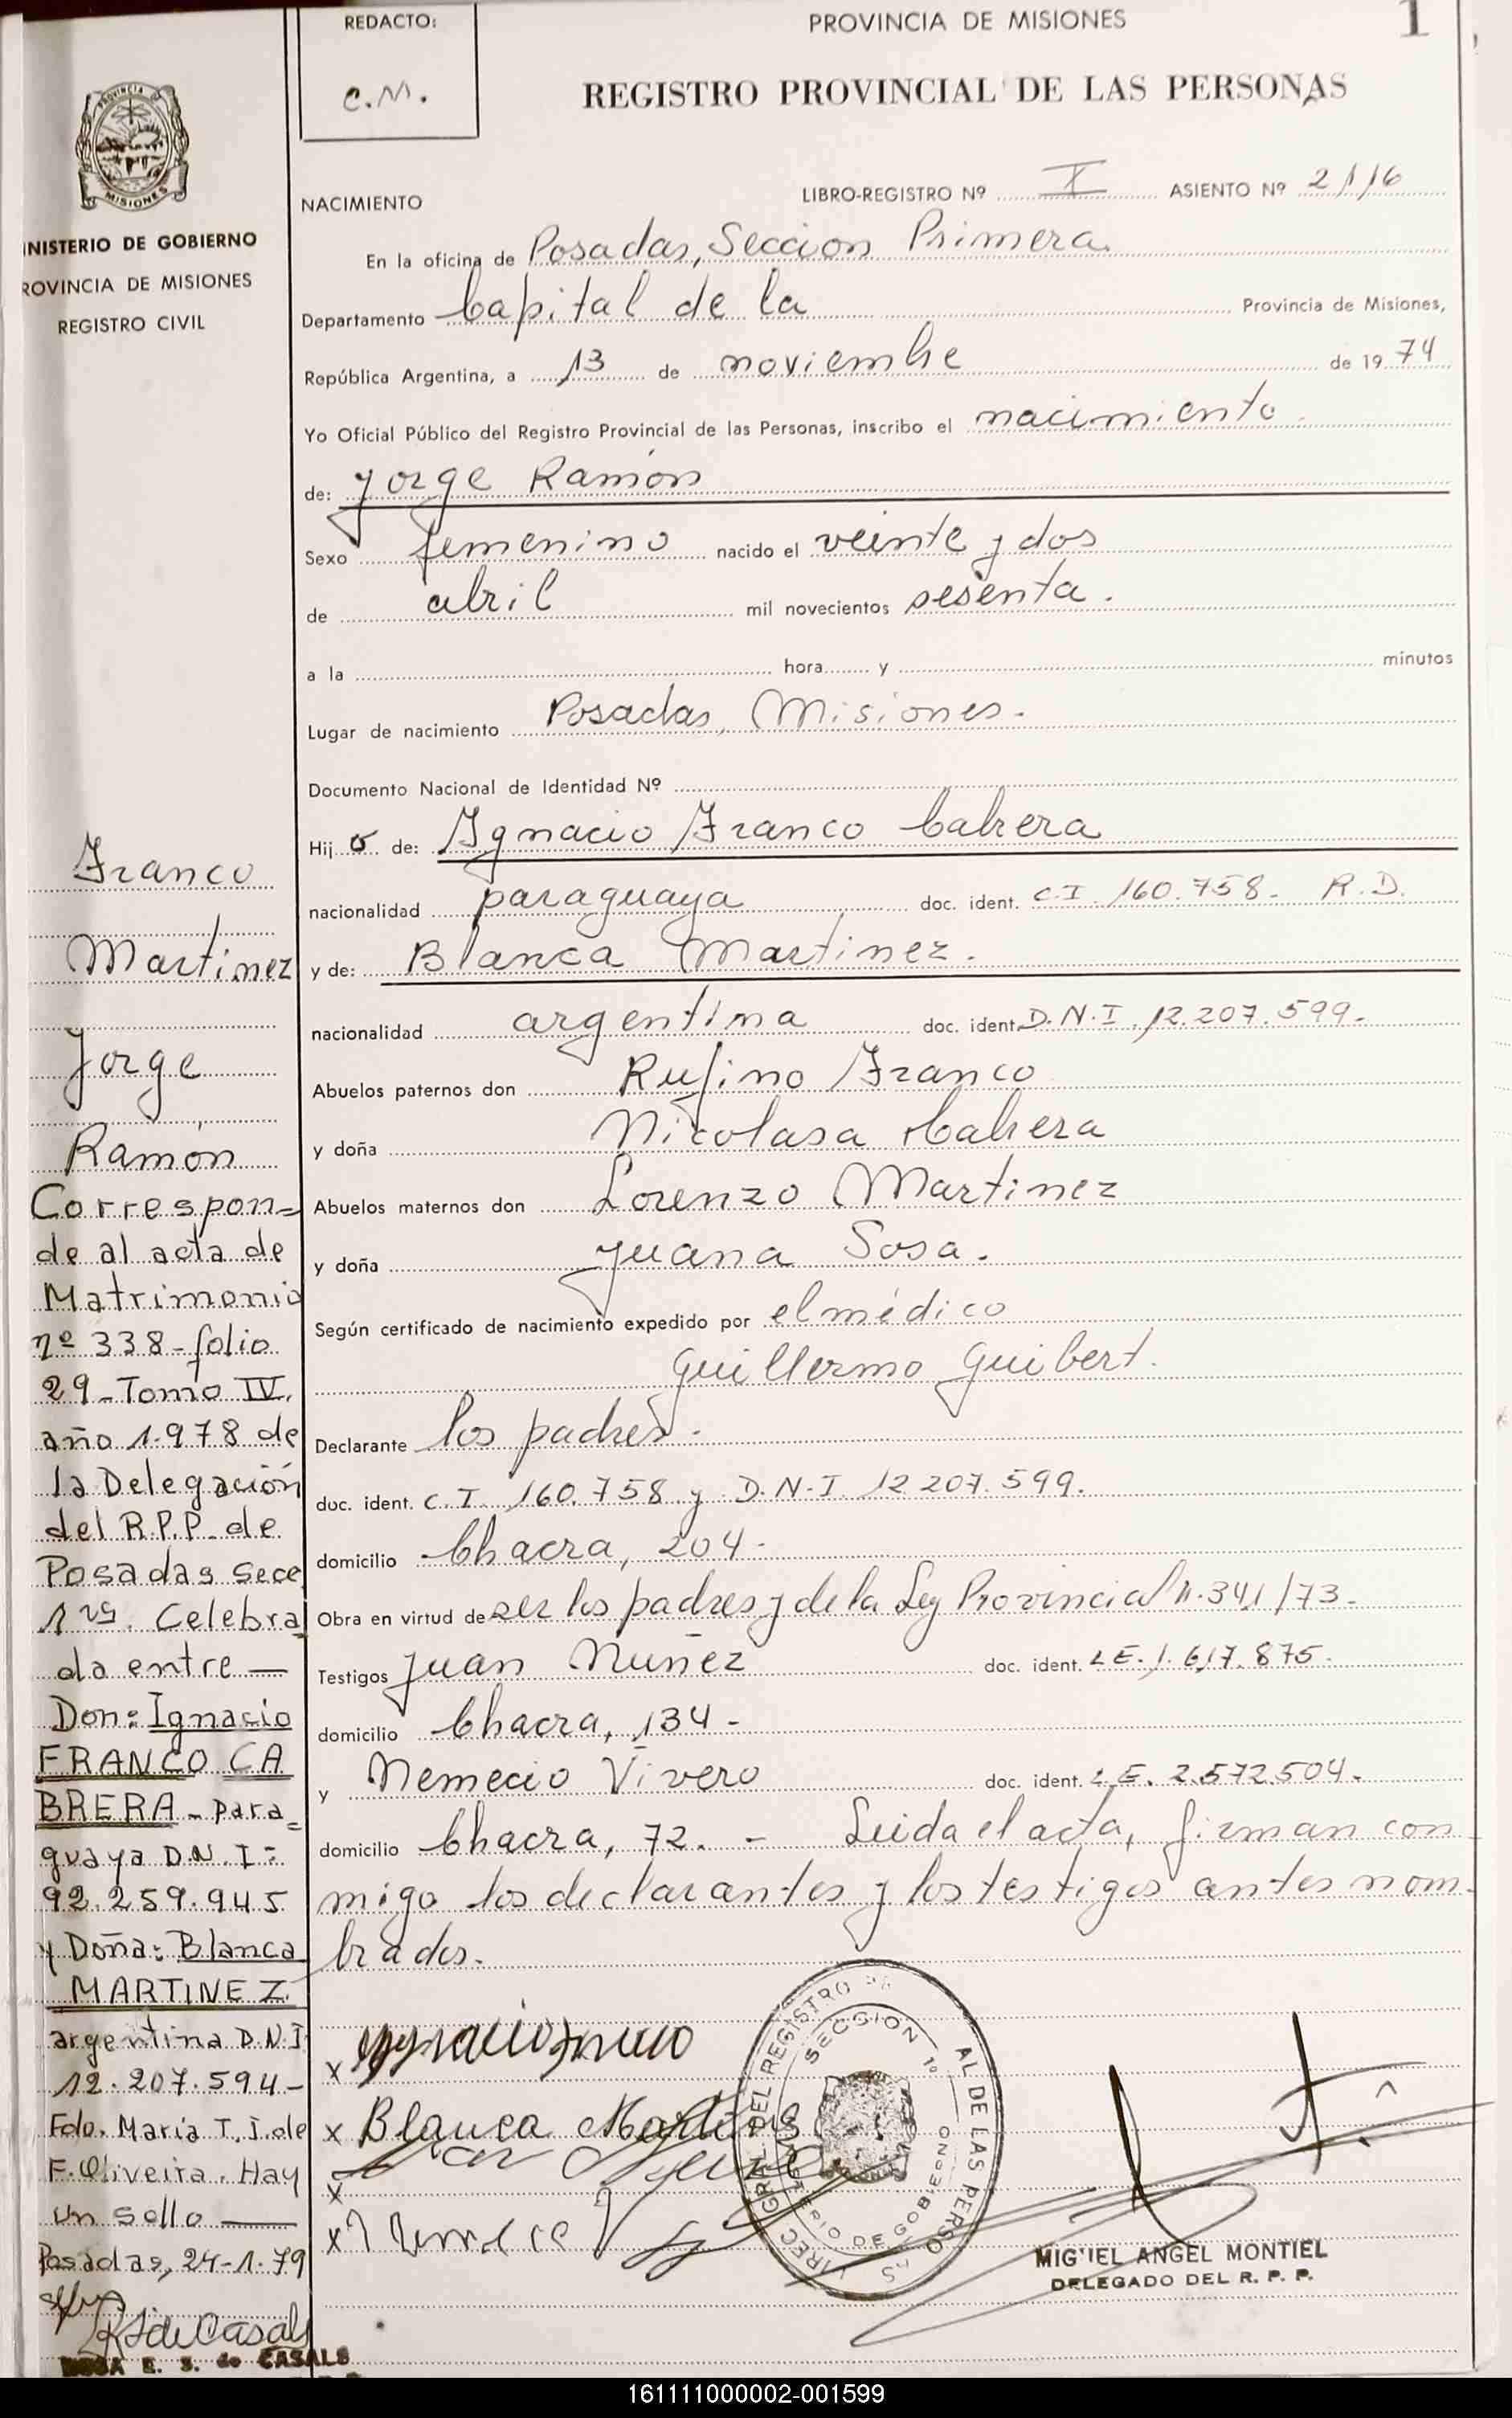 REDACTO:
C.M.
PROVINCIA DE MISIONES
1
REGISTRO PROVINCIAL DE LAS PERSONAS
PROVINCIA
MISIONES
NACIMIENTO
LIBRO-REGISTRO Nº X ASIENTO Nº 2116
INISTERIO DE GOBIERNO
ROVINCIA DE MISIONES
REGISTRO CIVIL
En la oficina de Posadas, Seccion Primera
Departamento Capital de la Provincia de Misiones,
República Argentina, a 13 de noviembre de 19 74
Yo Oficial Público del Registro Provincial de las Personas, inscribo el nacimiento
de: Jorge Ramón
Sexo femenino nacido el veinte y dos
de abril mil novecientos sesenta.
a la hora y minutos
Lugar de nacimiento Posadas, Misiones.
Documento Nacional de Identidad Nº
Hij o de: Ignacio Franco Cabrera
nacionalidad paraguaya doc. ident. C.I. 160.758- R.D.
y de: Blanca Martinez.
nacionalidad argentina doc. ident. D.N.I. 12.207.599-
Abuelos paternos don Rufino Franco
y doña Nicolasa Cabrera
Abuelos maternos don Lorenzo Martinez
y doña Juana Sosa.
Según certificado de nacimiento expedido por el médico
Guillermo Guibert.
Declarante los padres.
doc. ident. C.I. 160.758 y D.N.I. 12 207.599.
domicilio Chacra, 204-
Obra en virtud de ser los padres y de la Ley Provincial N. 341/73-
Testigos Juan Nuñez doc. ident. L.E. 1.617.875-
domicilio Chacra, 134-
y Nemecio Vivero doc. ident. L.E. 2.572.504-
domicilio Chacra, 72.- Leida el acta, firman con
migo los declarantes y los testigos antes nom-
brados.
Franco
Martinez
Jorge
Ramón
Correspon=
de al acta de
Matrimonio
nº 338-folio
29-Tomo IV,
año 1.978 de
la Delegación
del R.P.P. de
Posadas Secc
1ra. Celebra
da entre—
Don: Ignacio
FRANCO CA
BRERA-para=
guaya D.N.I:
92.259.945
y Doña: Blanca
MARTINEZ
argentina D.N.I
12.207.594-
Fdo. Maria T. J. de
F. Oliveira. Hay
un sello —
Posadas, 24-1-79
R S de Casals
E. S. de CASALS
x Ygnacio franco
x Blanca Martines
x
x
SECCION 1º
MIGUEL ANGEL MONTIEL
DELEGADO DEL R. P. P.
161111000002-001599